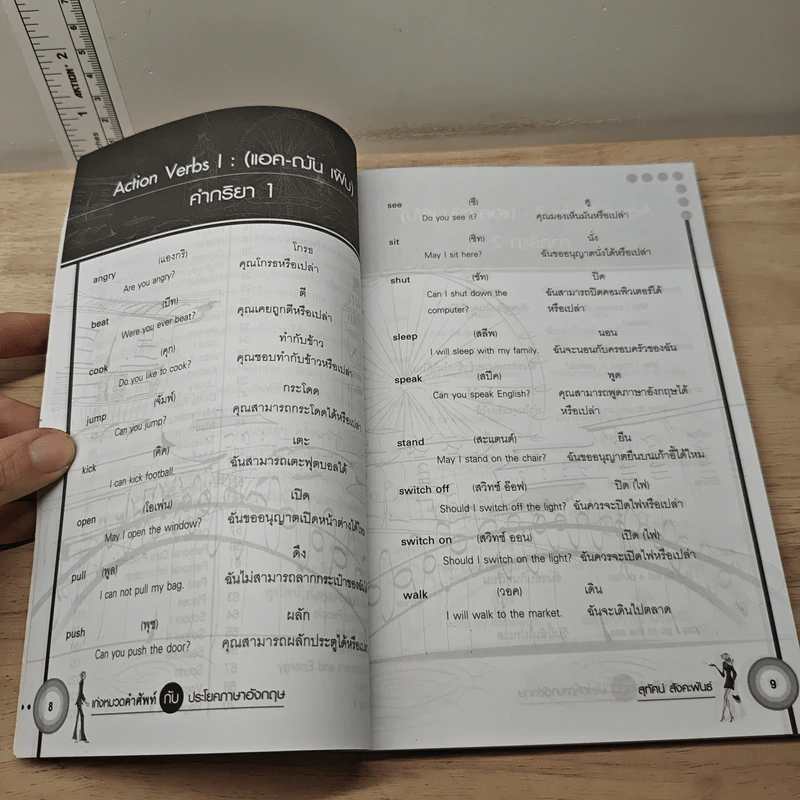 AKTION
Action Verbs I : (แอค-ฌัน เฟิบ)
คำกริยา 1
angry (แองกริ) โกรธ
Are you angry? คุณโกรธหรือเปล่า
beat (บีท) ตี
Were you ever beat? คุณเคยถูกตีหรือเปล่า
cook (คุก) ทำกับข้าว
Do you like to cook? คุณชอบทำกับข้าวหรือเปล่า
jump (จัมพ์) กระโดด
Can you jump? คุณสามารถกระโดดได้หรือเปล่า
kick (คิค) เตะ
I can kick football. ฉันสามารถเตะฟุตบอลได้
open (โอเพ่น) เปิด
May I open the window? ฉันขออนุญาตเปิดหน้าต่างได้ไหม
pull (พูล) ดึง
I can not pull my bag. ฉันไม่สามารถลากกระเป๋าของฉัน
push (พุช) ผลัก
Can you push the door? คุณสามารถผลักประตูได้หรือ
8 เก่งหมวดคำศัพท์ กับ ประโยคภาษาอังกฤษ
see (ซี) ดู
Do you see it? คุณมองเห็นมันหรือเปล่า
sit (ซิท) นั่ง
May I sit here? ฉันขออนุญาตนั่งได้หรือเปล่า
shut (ชัท) ปิด
Can I shut down the ฉันสามารถปิดคอมพิวเตอร์ได้
computer? หรือเปล่า
sleep (สลีพ) นอน
I will sleep with my family. ฉันจะนอนกับครอบครัวของฉัน
speak (สปีค) พูด
Can you speak English? คุณสามารถพูดภาษาอังกฤษได้
หรือเปล่า
stand (สะแตนด์) ยืน
May I stand on the chair? ฉันขออนุญาตยืนบนเก้าอี้ได้ไหม
switch off (สวิทช์ อ๊อฟ) ปิด (ไฟ)
Should I switch off the light? ฉันควรจะปิดไฟหรือเปล่า
switch on (สวิทช์ ออน) เปิด (ไฟ)
Should I switch on the light? ฉันควรจะเปิดไฟหรือเปล่า
walk (วอค) เดิน
I will walk to the market. ฉันจะเดินไปตลาด
สุทัศน์ สังคะพันธ์ 9